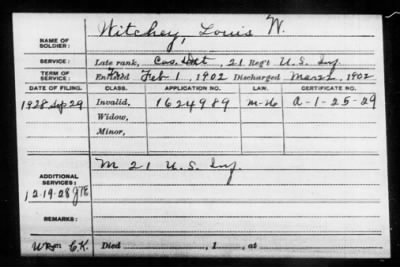 NAME OF SOLDIER: Witchey, Louis W.
SERVICE: Late rank, Cas. Det, 21 Reg't U.S. Inf
TERM OF SERVICE: Enlisted Feb 1, 1902 Discharged Mar 22, 1902
DATE OF FILING. CLASS. APPLICATION NO. LAW. CERTIFICATE NO.
1928 Sep 29 Invalid, 1624989 A-1-25-29
Widow,
Minor,
ADDITIONAL SERVICES: M 21 U.S. Inf.
12-19-28
REMARKS:
C.K. Died , 1 , at